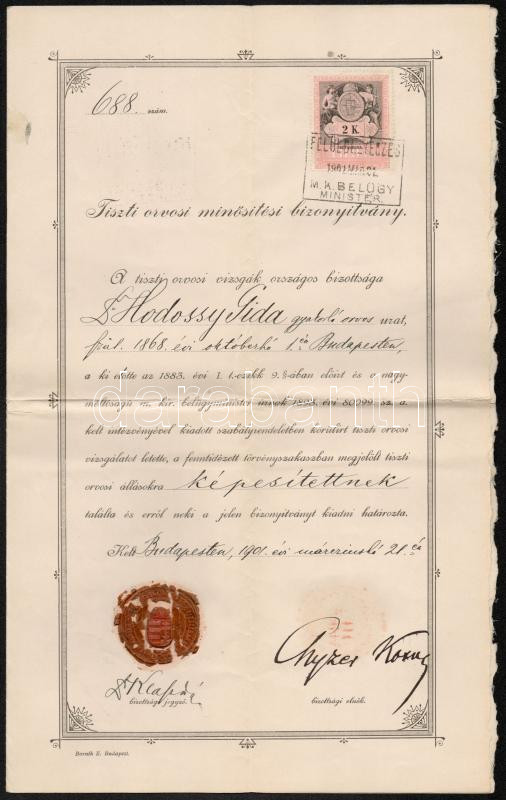 688. szám.
2 K.
FELÜLBÉLYEGZÉS
1901
M. K. BELÜGY
MINISTER.
Tiszti orvosi minősitési bizonyitvány.
A tiszti orvosi vizsgák országos bizottsága
Dr Hodossy Gida gyakorló orvos urat,
szül. 1868. évi októberhó 1.én Budapesten,
a ki előtte az 1883. évi I. t.-czikk 9. §-ában előirt és a nagy-
méltóságú m. kir. belügyminister úrnak évi 80099. sz. a.
kelt intézvényével kiadott szabályrendeletben körülirt tiszti orvosi
vizsgálatot letette, a fenntidézett törvényszakaszban megjelölt tiszti
orvosi állásokra képesítettnek
találta és erről neki a jelen bizonyitványt kiadni határozta.
Kelt Budapesten, 1901. évi márcziushó 21.én
darabanth
Dr
Chyzer Kornél
bizottsági jegyző.
bizottsági elnök.
Budapest.